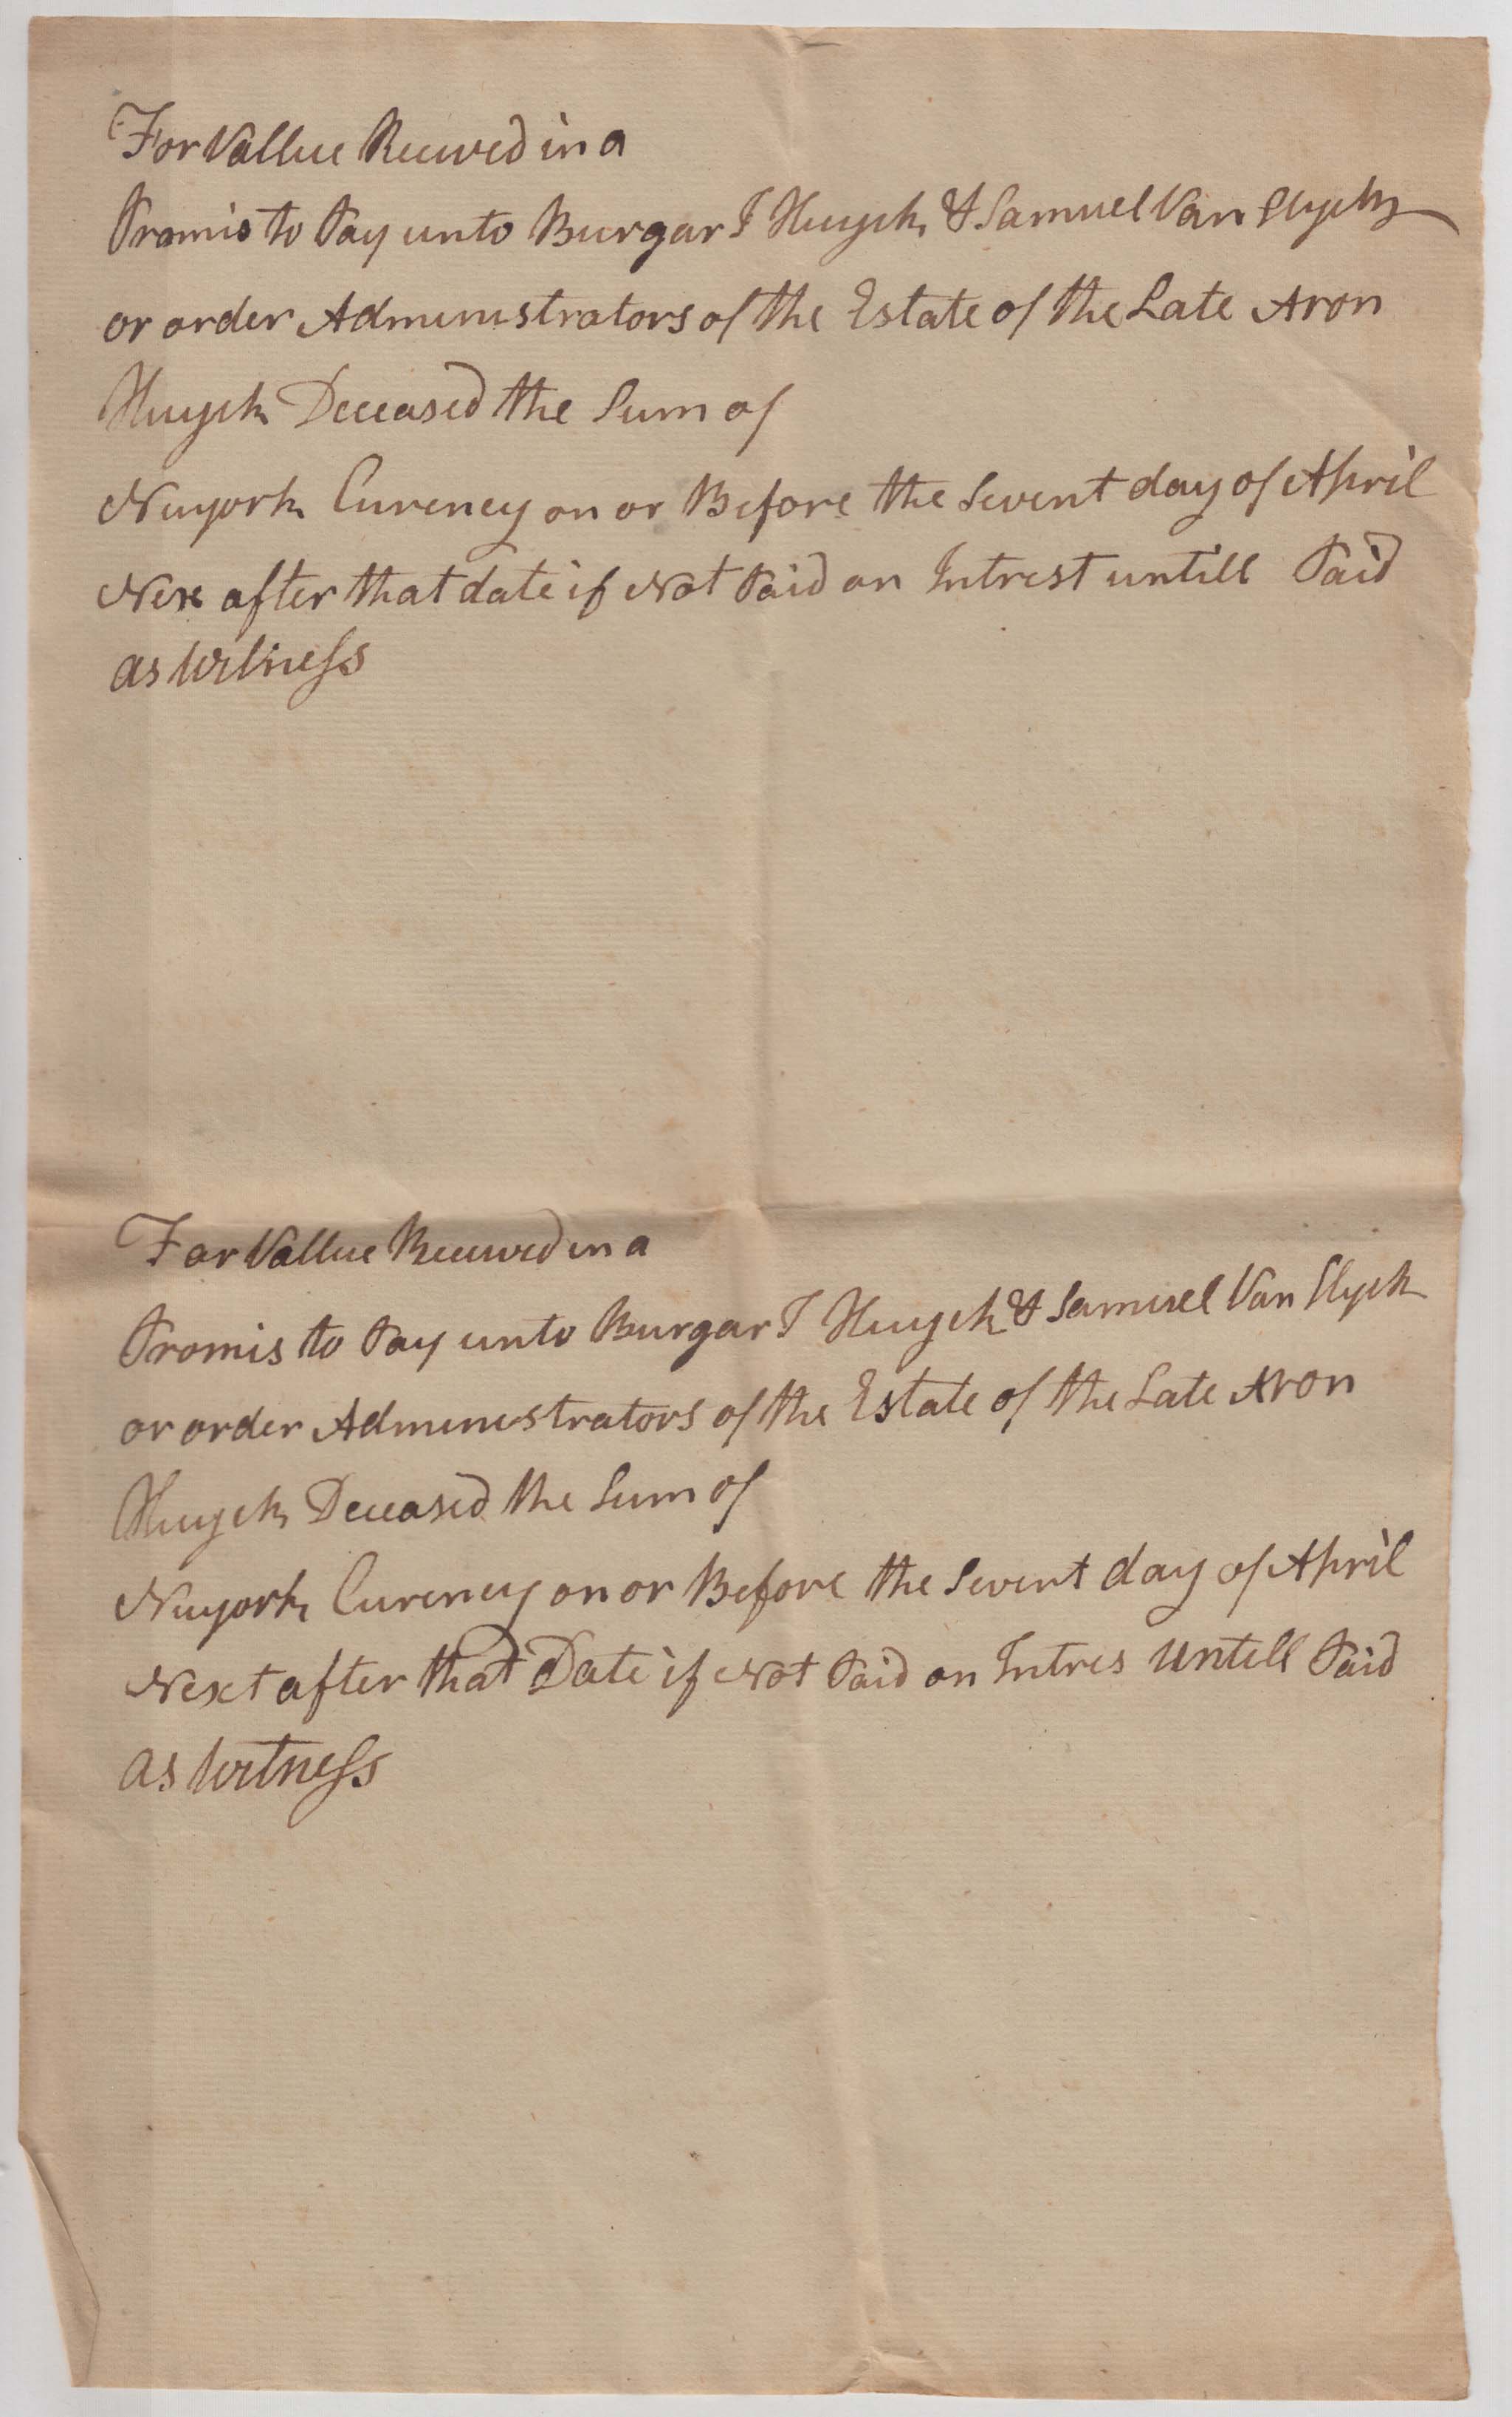 For Vallue Received in a
Promis to Pay unto Burgar I Huyck & Samuel Van Slyck
or order Administrators of the Estate of the Late Aron
Huyck Deceased the Sum of
Nuyork Cureney on or Before the Sevent day of April
Nex after that date if Not Paid on Intrest untill Paid
as Witness
For Vallue Received in a
Promis to Pay unto Burgar I Huyck & Samuel Van Slyck
or order Administrators of the Estate of the Late Aron
Huyck Deceased the Sum of
Nuyork Cureney on or Before the Sevent day of April
Next after that Date if Not Paid on Intres Untell Paid
as Witness